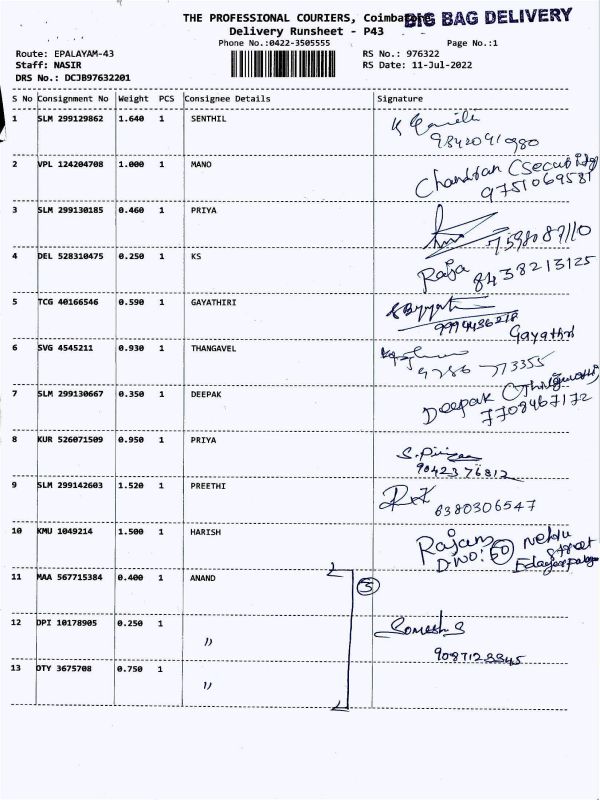 THE PROFESSIONAL COURIERS, Coimbatore
BIG BAG DELIVERY
Delivery Runsheet - P43
Phone No.:0422-3505555 Page No.:1
Route: EPALAYAM-43 RS No.: 976322
Staff: NASIR RS Date: 11-Jul-2022
DRS No.: DCJB97632201
S No Consignment No Weight PCS Consignee Details Signature
1 SLM 299129862 1.640 1 SENTHIL
9842041980
2 VPL 124204708 1.000 1 MANO Chandran
9751069581
3 SLM 299130185 0.460 1 PRIYA
7598089110
4 DEL 528310475 0.250 1 KS Raja 8438213125
5 TCG 40166546 0.590 1 GAYATHIRI
9994436218
Gayathri
6 SVG 4545211 0.930 1 THANGAVEL
9786 773355
7 SLM 299130667 0.350 1 DEEPAK Deepak
7708467172
8 KUR 526071509 0.950 1 PRIYA
9042376812
9 SLM 299142603 1.520 1 PREETHI
6380306547
10 KMU 1049214 1.500 1 HARISH Rajam Nehru
D.NO: 60 Street
11 MAA 567715384 0.400 1 ANAND 5
12 DPI 10178905 0.250 1 Somesh S
〃
13 DTY 3675708 0.750 1
〃